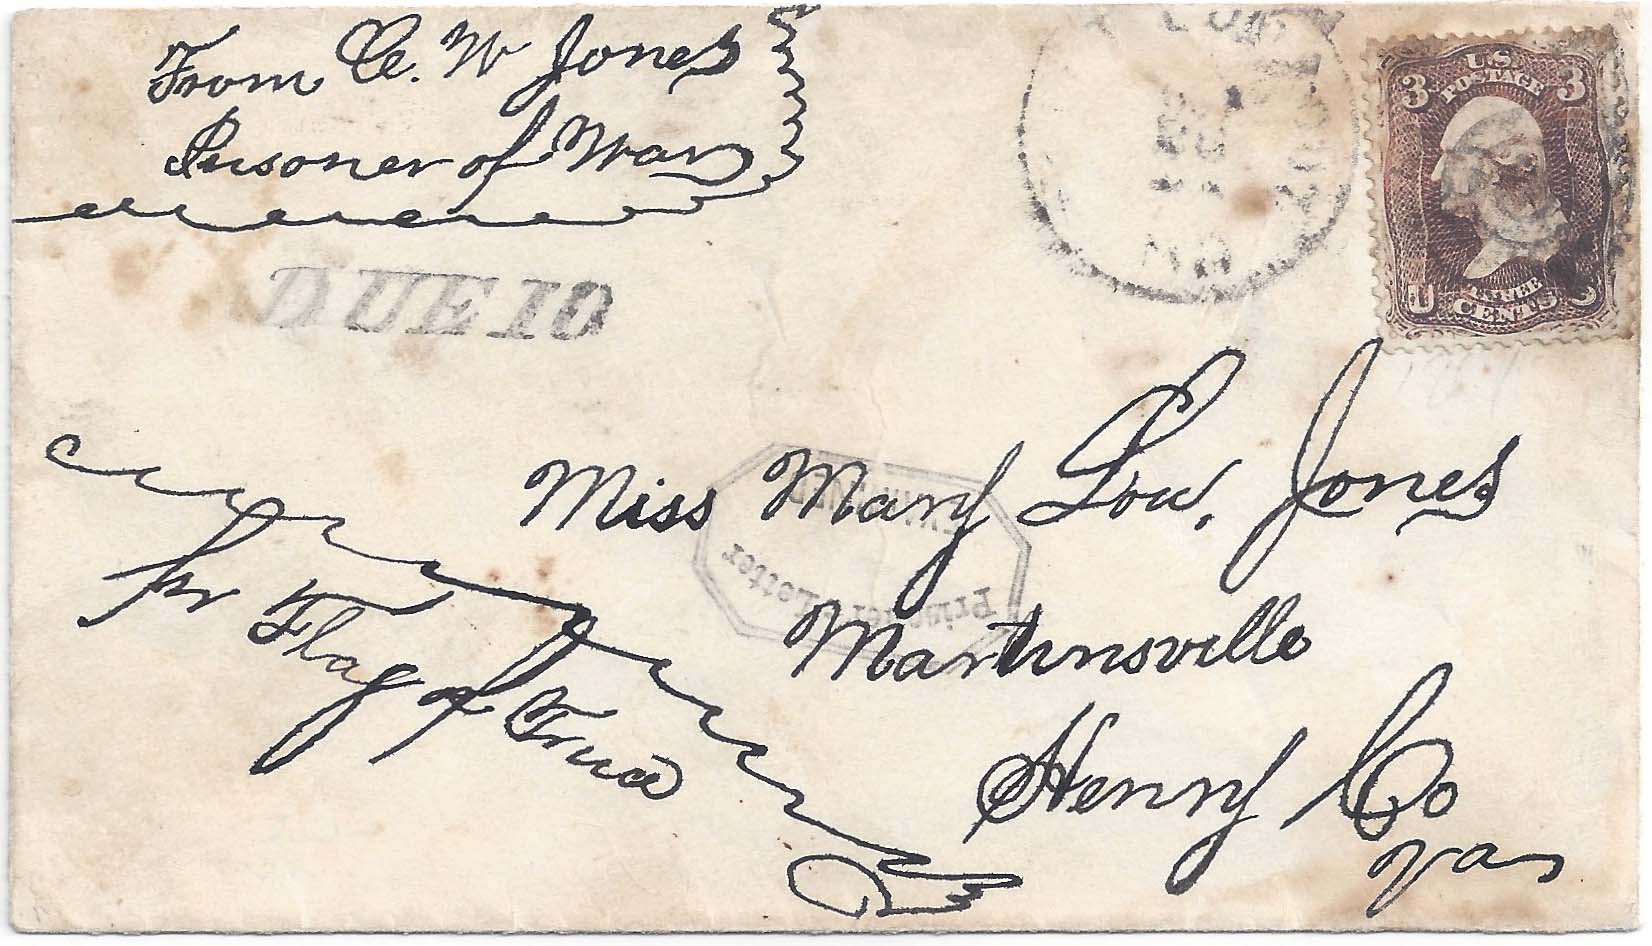 From C. W Jones
Prisoner of War
DUE 10
U.S.
POSTAGE
3 3
U S
THREE
CENTS
Miss Mary Lou. Jones
Martinsville
Henry Co
Va
pr Flag of Truce
Prisoner's Letter
EXAMINED